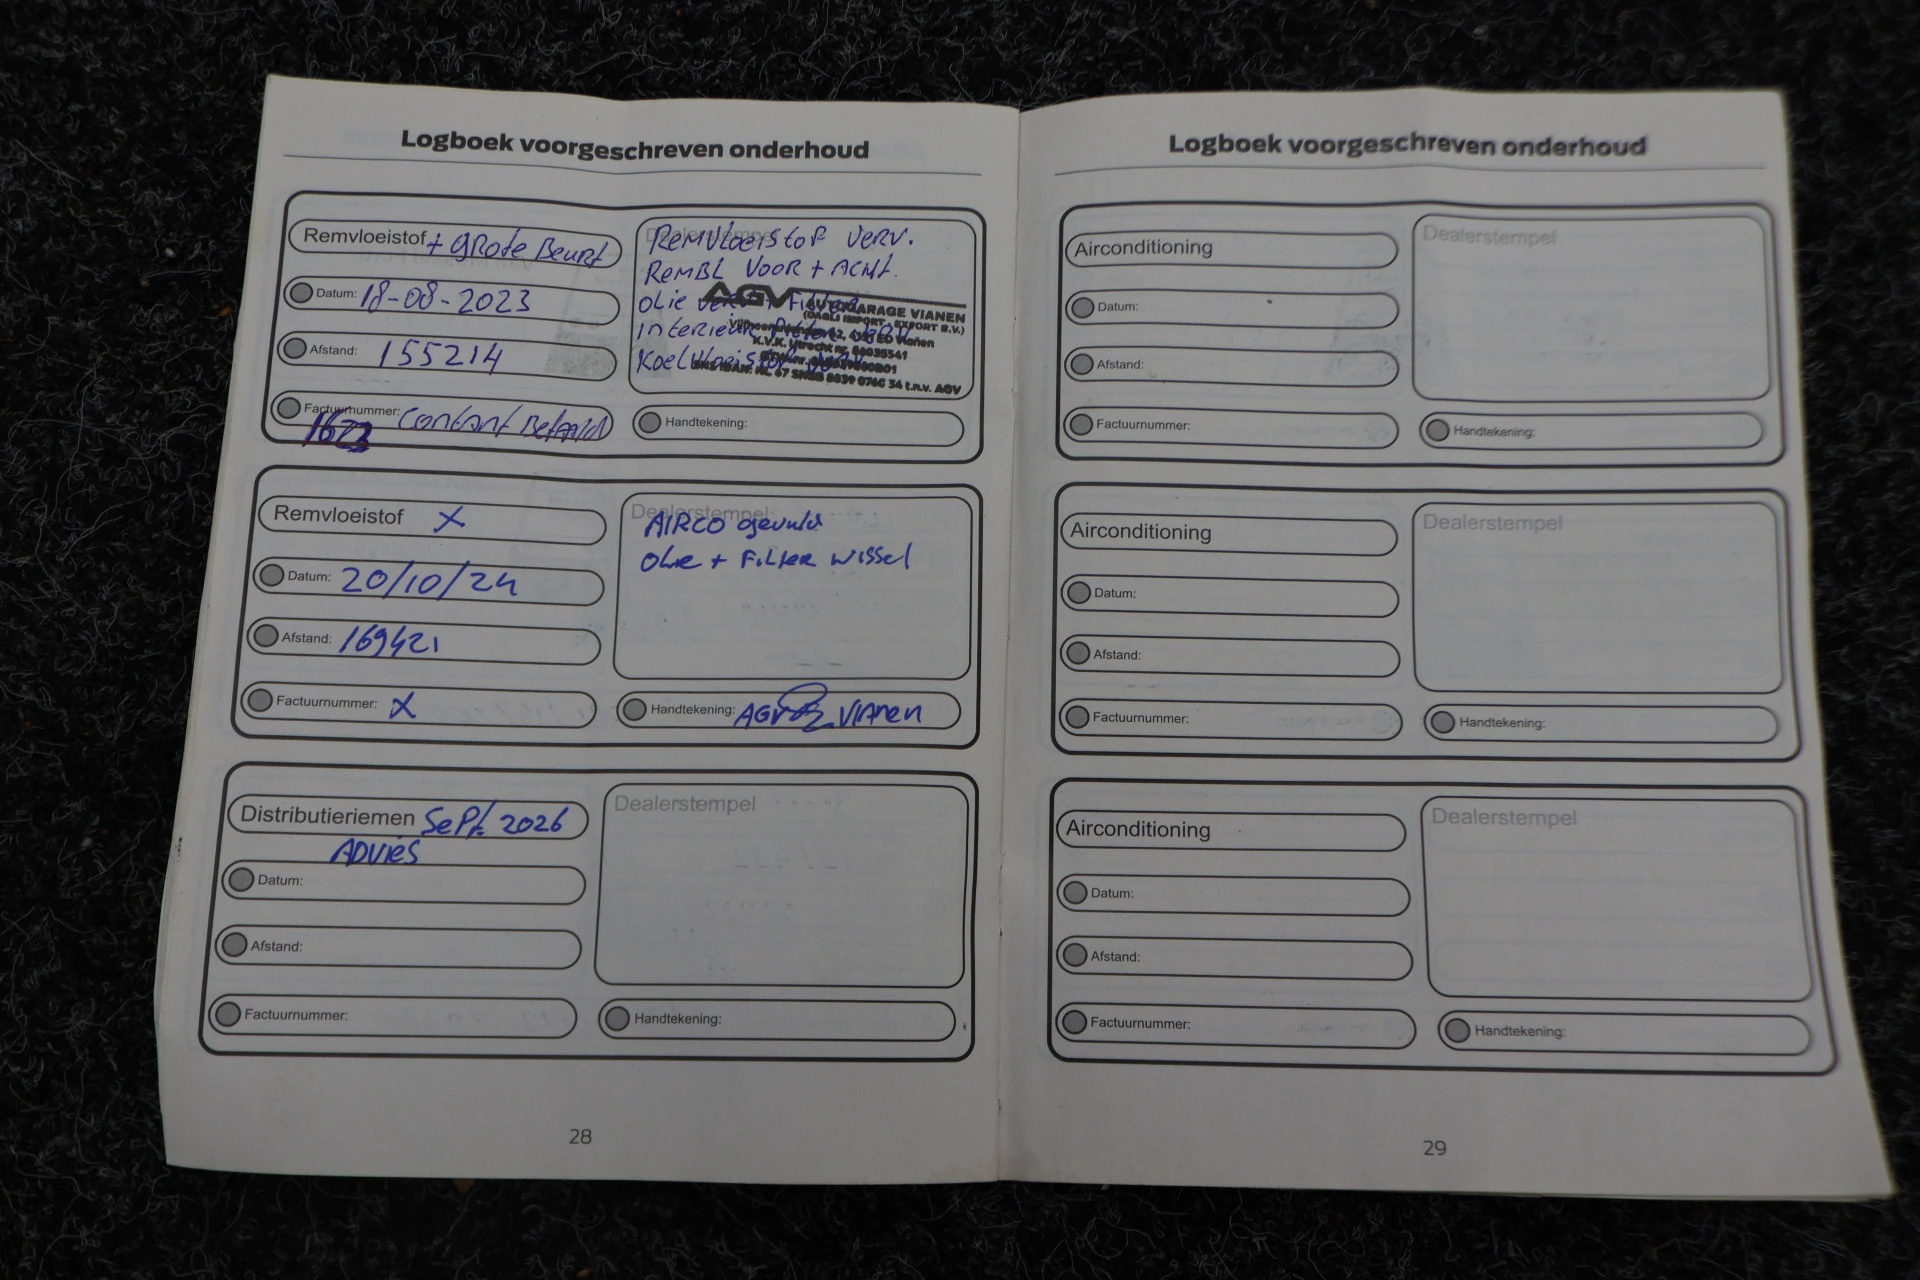 Logboek voorgeschreven onderhoud
Remvloeistof + GROte Beurt
Datum: 18-08-2023
Afstand: 155214
Factuurnummer: Contant Betaald
1623
Dealerstempel
REMVloeistof VERV.
REMBL VOOR + ACHt.
Olie verv + Filter
interieur Filter VERV
Koelvloeistof
AGV AUTOGARAGE VIANEN
EXPORT B.V.)
Vianen
K.V.K. Utrecht nr.
t.n.v. AGV
Handtekening:
Remvloeistof X
Datum: 20/10/24
Afstand: 169421
Factuurnummer: X
Dealerstempel
AIRCO gevuld
Olie + Filter wissel
Handtekening: AGV VIANEN
Distributieriemen SePt. 2026
ADVIES
Datum:
Afstand:
Factuurnummer:
Dealerstempel
Handtekening:
28
Logboek voorgeschreven onderhoud
Airconditioning
Datum:
Afstand:
Factuurnummer:
Dealerstempel
Handtekening:
Airconditioning
Datum:
Afstand:
Factuurnummer:
Dealerstempel
Handtekening:
Airconditioning
Datum:
Afstand:
Factuurnummer:
Dealerstempel
Handtekening:
29